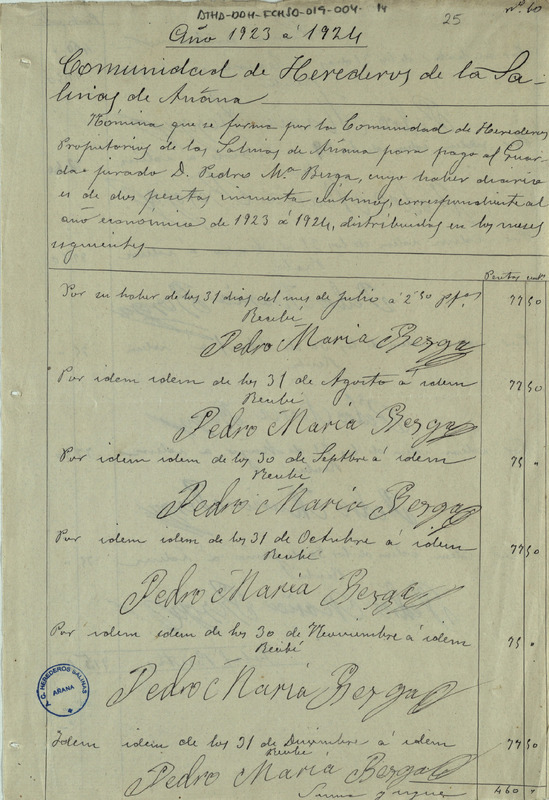 ATHA-DDH-FCHSO-019-004-14
25
nº 60
Año 1923 á 1924
Comunidad de Herederos de la Sa-
linas de Añana
Nómina que se forma por la Comunidad de Herederos
Propietarios de las Salinas de Añana para pago al Guar-
da jurado D. Pedro Mª Berga, cuyo haber diario
es de dos pesetas cincuenta céntimos, correspondiente al
año económico de 1923 á 1924, distribuidas en los meses
siguientes
Pesetas cents
Por su haber de los 31 dias del mes de Julio á 2'50 ptas 77 50
Recibí
Pedro Maria Berga
Por idem idem de los 31 de Agosto á idem 77 50
Recibí
Pedro Maria Berga
Por idem idem de los 30 de Septbre á idem 75 "
Recibí
Pedro Maria Berga
Por idem idem de los 31 de Octubre á idem 77 50
Recibí
Pedro Maria Berga
Por idem idem de los 30 de Noviembre á idem 75 "
Recibí
Pedro Maria Berga
Idem idem de los 31 de Diciembre á idem 77 50
Recibí
Pedro Maria Berga
Suma y sigue 460 "
C. HEREDEROS SALINAS
AÑANA